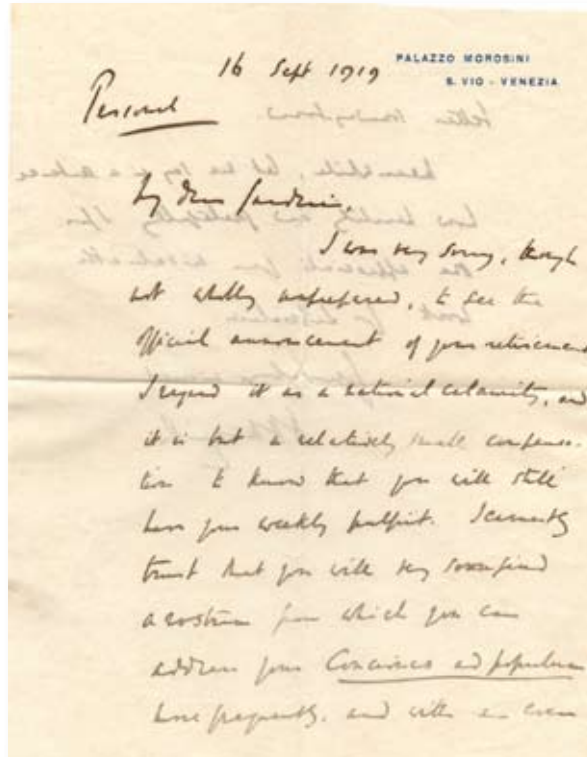 PALAZZO MOROSINI
S. VIO - VENEZIA
16 Sept 1919
Personal
My dear Gardiner,
I was very sorry, though
not wholly unprepared, to see the
official announcement of your retirement
I regard it as a national calamity, and
it is but a relatively small compensa-
tion to know that you will still
have your weekly pulpit. I earnestly
trust that you will very soon find
a rostrum from which you can
address your Conciones ad populum
more frequently, and with an even